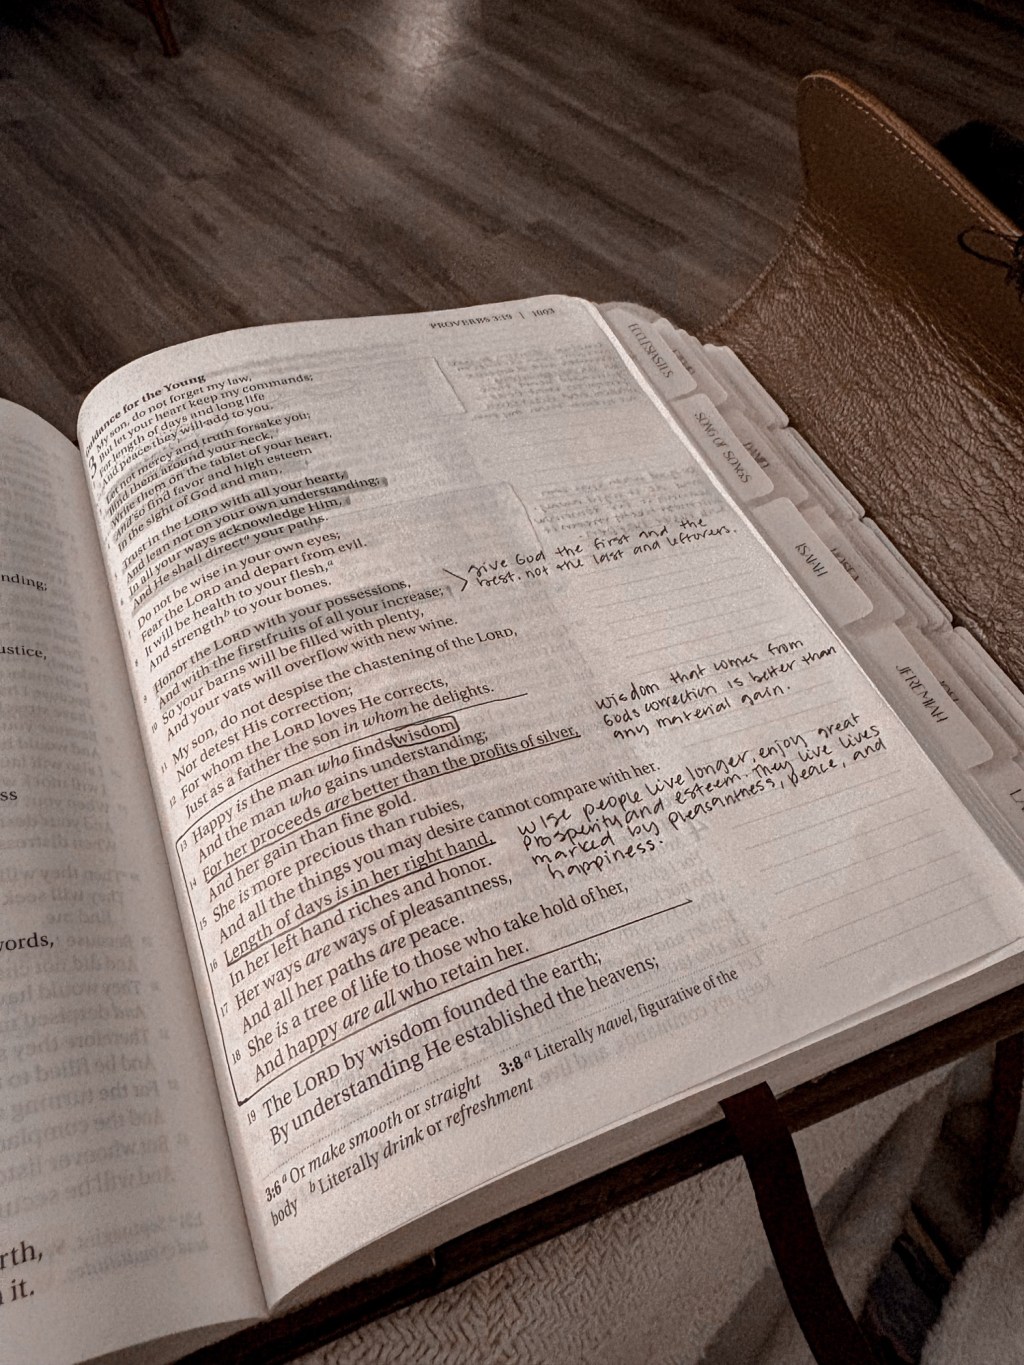 PROVERBS 3:19 | 1003
Guidance for the Young
3 My son, do not forget my law,
But let your heart keep my commands;
For length of days and long life
And peace they will add to you.
Let not mercy and truth forsake you;
Bind them around your neck,
Write them on the tablet of your heart,
And so find favor and high esteem
In the sight of God and man.
Trust in the LORD with all your heart,
And lean not on your own understanding;
In all your ways acknowledge Him,
And He shall directᵃ your paths.
Do not be wise in your own eyes;
Fear the LORD and depart from evil.
It will be health to your flesh,ᵃ
And strengthᵇ to your bones.
9 Honor the LORD with your possessions,
And with the firstfruits of all your increase;
10 So your barns will be filled with plenty,
And your vats will overflow with new wine.
give God the first and the
best. not the last and leftovers.
11 My son, do not despise the chastening of the LORD,
Nor detest His correction;
12 For whom the LORD loves He corrects,
Just as a father the son in whom he delights.
13 Happy is the man who finds wisdom,
And the man who gains understanding;
14 For her proceeds are better than the profits of silver,
And her gain than fine gold.
15 She is more precious than rubies,
And all the things you may desire cannot compare with her.
16 Length of days is in her right hand,
In her left hand riches and honor.
17 Her ways are ways of pleasantness,
And all her paths are peace.
18 She is a tree of life to those who take hold of her,
And happy are all who retain her.
wisdom that comes from
Gods correction is better than
any material gain.
wise people live longer, enjoy great
prosperity and esteem. They live lives
marked by pleasantness, peace, and
happiness.
19 The LORD by wisdom founded the earth;
By understanding He established the heavens;
3:6 ᵃ Or make smooth or straight 3:8 ᵃ Literally navel, figurative of the
body ᵇ Literally drink or refreshment
nding;
ustice,
ss
vords,
rth,
it.
ECCLESIASTES
SONG OF SONGS
DANIEL
ISAIAH
HOSEA
JEREMIAH